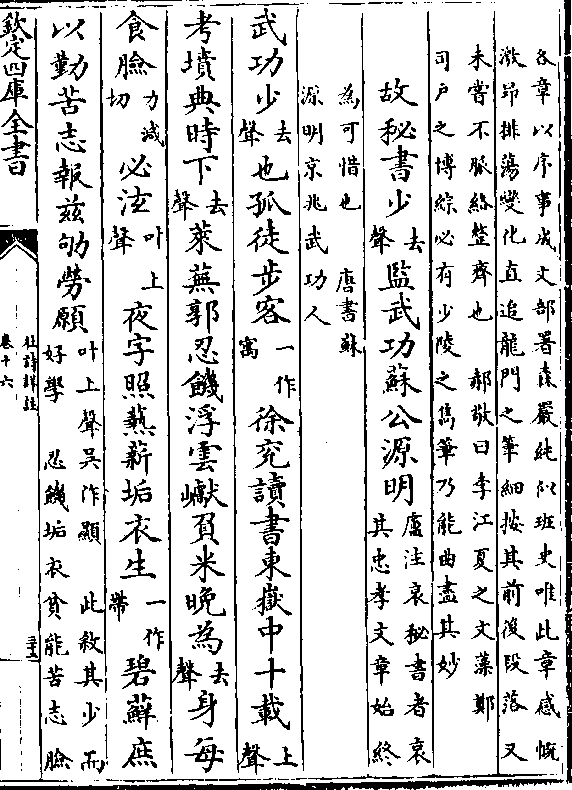 各章以序事成文部署森嚴純似班史唯此章感慨
激昂排蕩變化直追龍門之筆細按其前後段落又
未嘗不脈絡整齊也 郝敬曰李江夏之文藻鄭
司戶之博綜必有少陵之雋筆乃能曲盡其妙
故秘書少去聲監武功蘇公源明盧注哀秘書者哀其忠孝文章始終
為可惜也 唐書蘇
源明京兆武功人
武功少去聲也孤徒步客一作寓徐兖讀書東嶽中十載上聲
考墳典時下去聲萊蕪郭忍饑浮雲巘負米晚為去聲身每
食臉力減切必泫叶上聲夜字照爇薪垢衣生一作帶碧蘚庶
以勤苦志報兹劬勞願叶上聲吳作顯 此敘其少而好學 忍饑垢衣貧能苦志臉
欽定四庫全書
杜詩詳註
卷十六